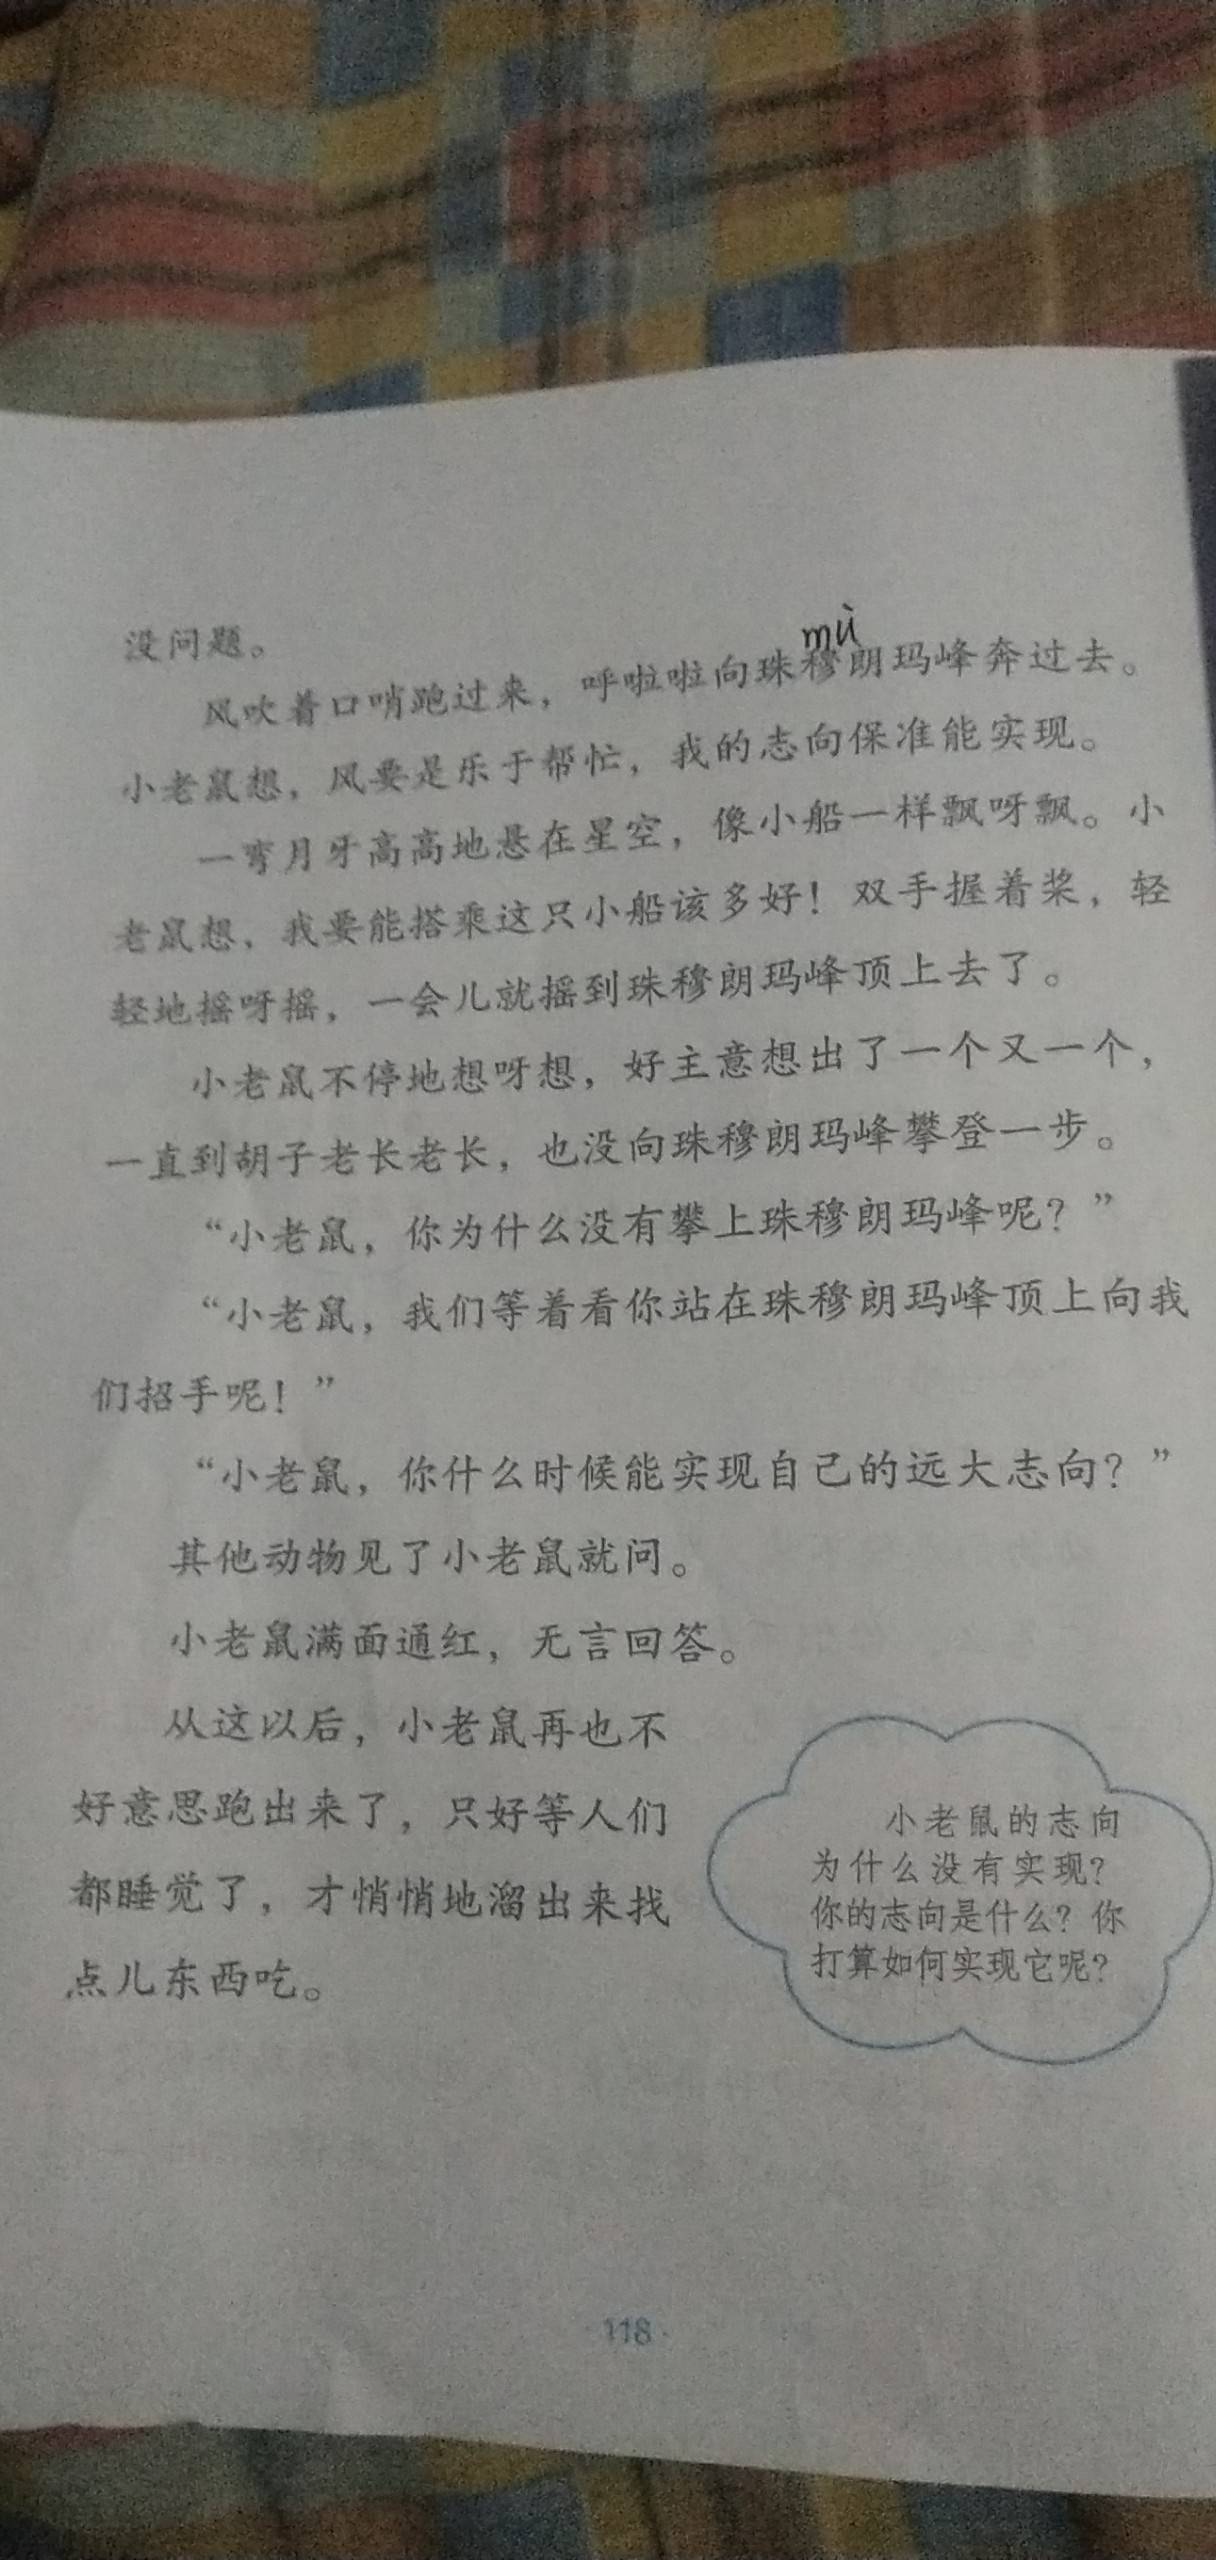 没问题。
mù
风吹着口哨跑过来，呼啦啦向珠穆朗玛峰奔过去。
小老鼠想，风要是乐于帮忙，我的志向保准能实现。
一弯月牙高高地悬在星空，像小船一样飘呀飘。小
老鼠想，我要能搭乘这只小船该多好！双手握着桨，轻
轻地摇呀摇，一会儿就摇到珠穆朗玛峰顶上去了。
小老鼠不停地想呀想，好主意想出了一个又一个，
一直到胡子老长老长，也没向珠穆朗玛峰攀登一步。
“小老鼠，你为什么没有攀上珠穆朗玛峰呢？”
“小老鼠，我们等着看你站在珠穆朗玛峰顶上向我
们招手呢！”
“小老鼠，你什么时候能实现自己的远大志向？”
其他动物见了小老鼠就问。
小老鼠满面通红，无言回答。
从这以后，小老鼠再也不
好意思跑出来了，只好等人们
都睡觉了，才悄悄地溜出来找
点儿东西吃。
小老鼠的志向
为什么没有实现？
你的志向是什么？你
打算如何实现它呢？
·118·